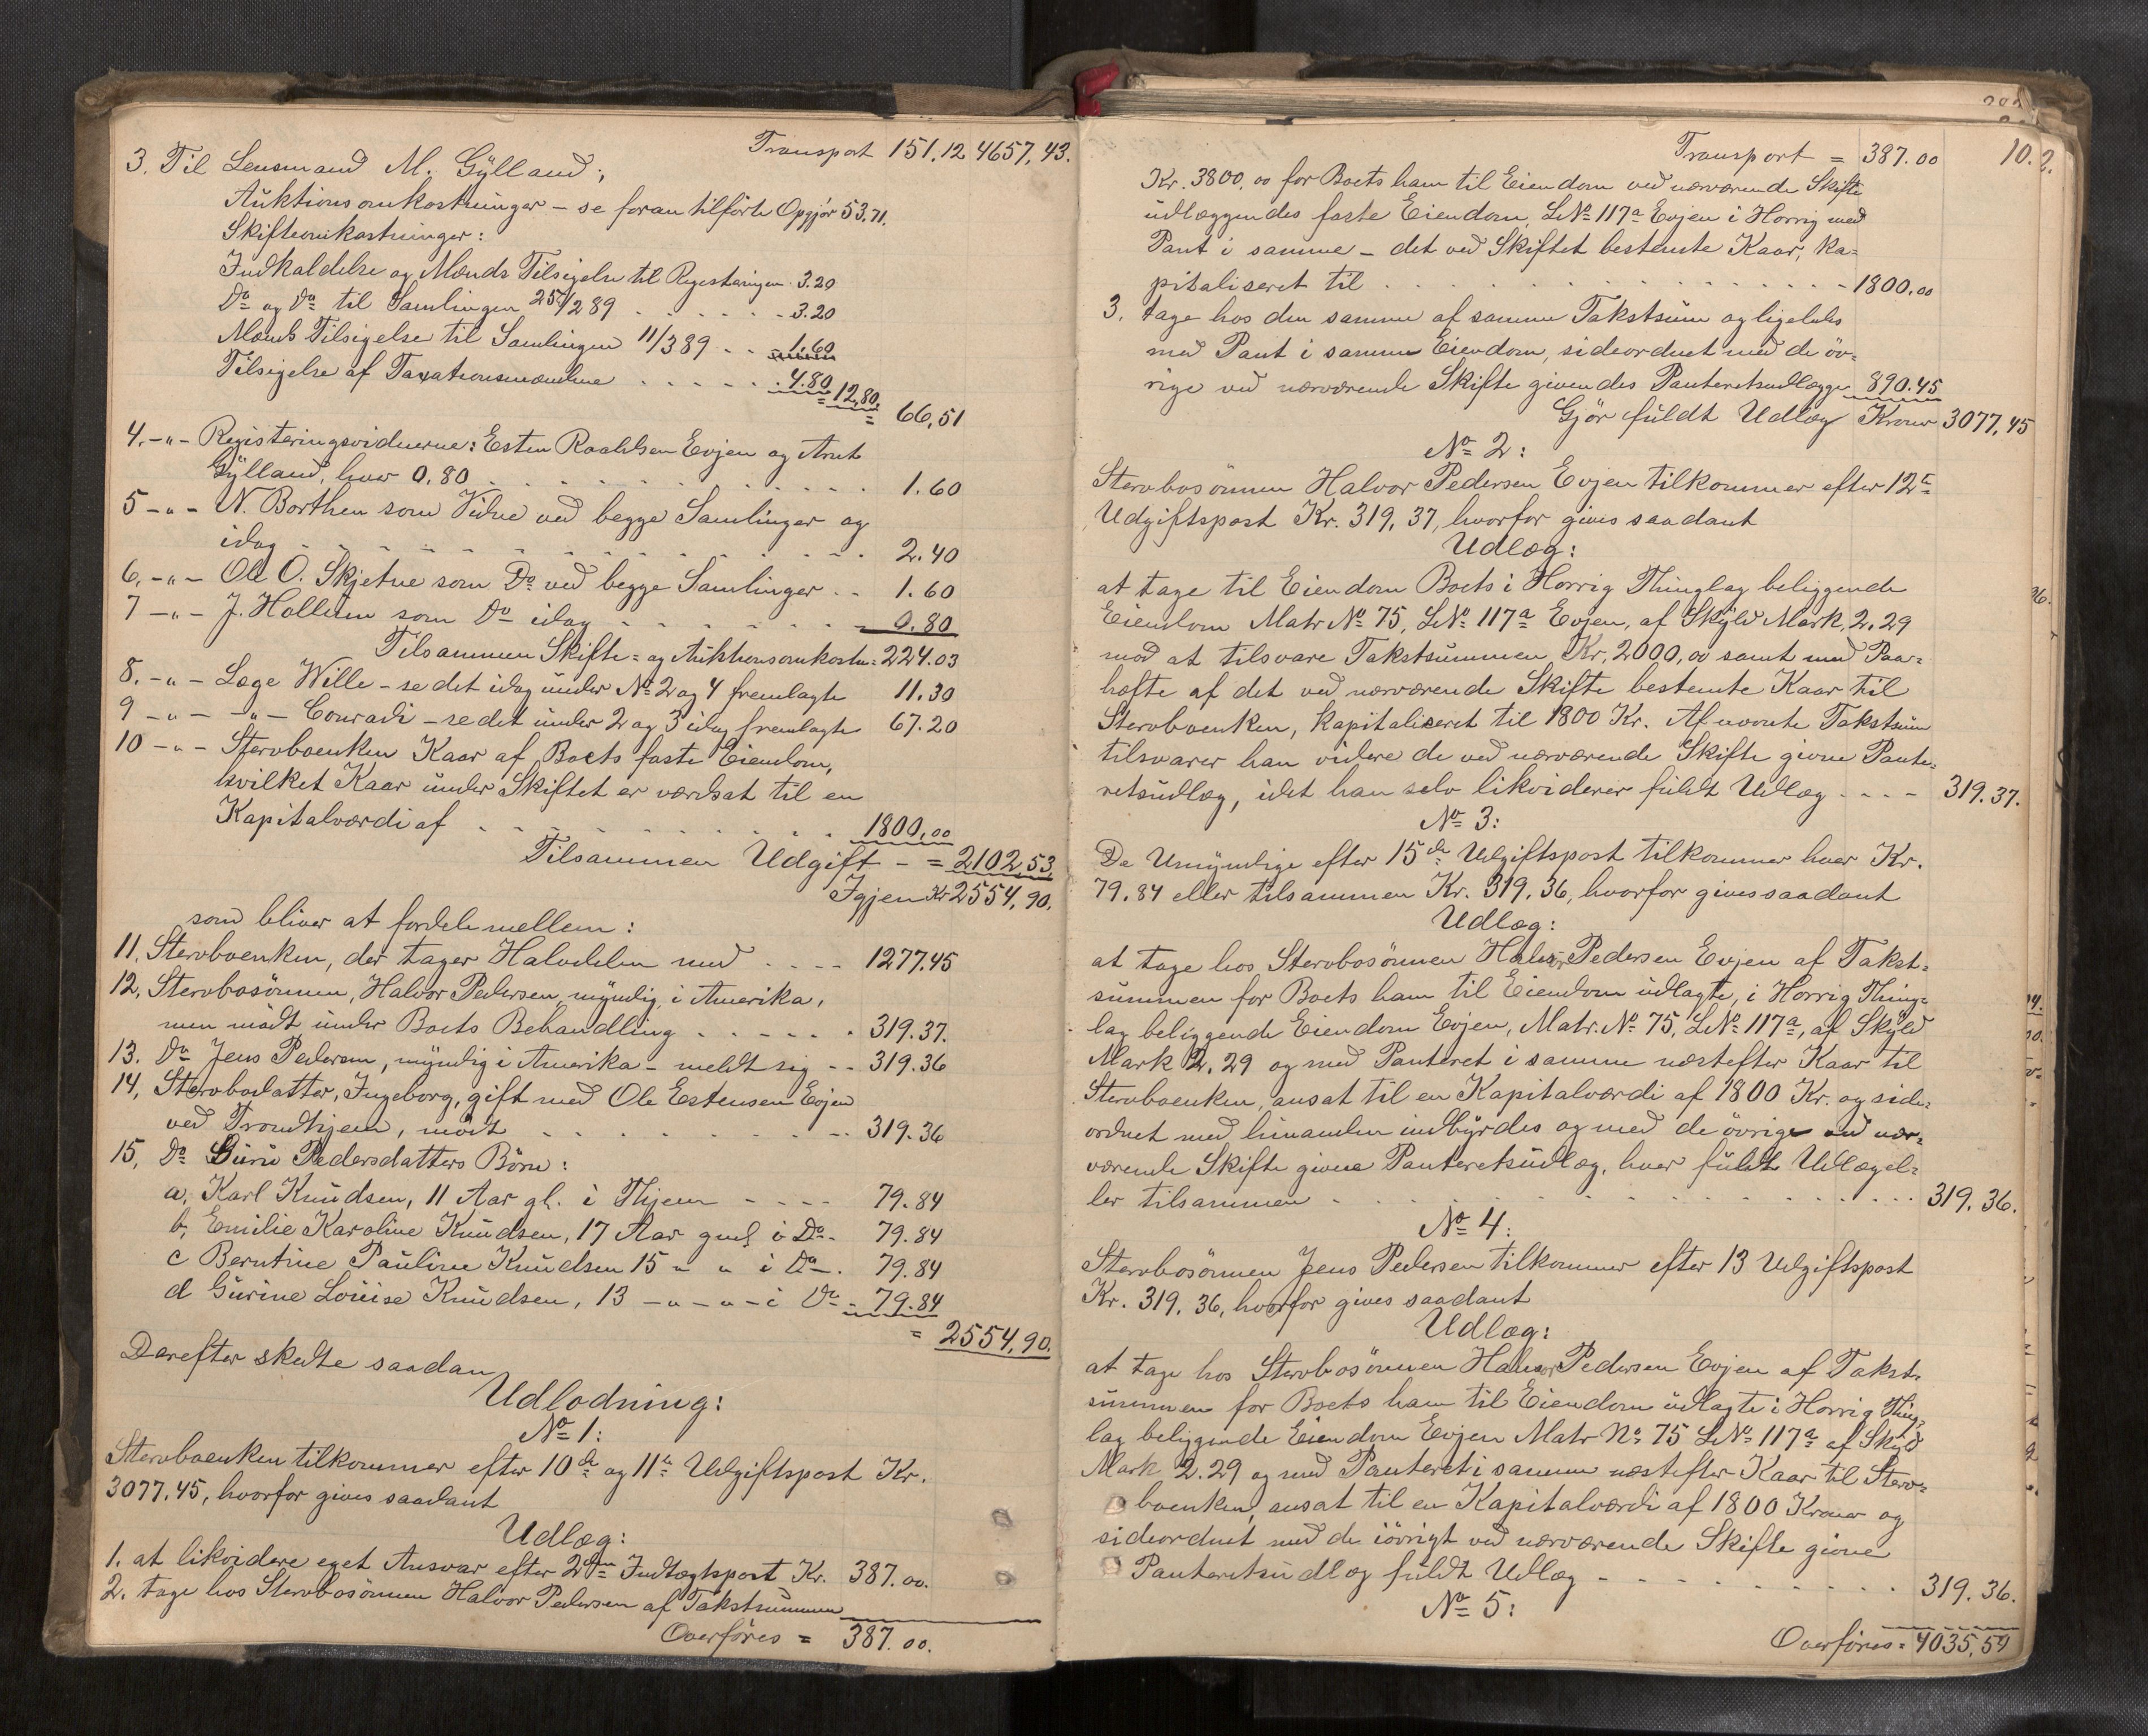 Transport 151.12 4657,43.
3. Til Lensmand M. Gÿlland;
Auktionsomkostninger - se foran tilførte Opgjør 53.71.
Skifteomkostninger:
Indkaldelse og Mænds Tilsigelse til Registeringen . 3.20
Do og Do til Samlingen 25/2 89 . . . . . . - 3.20
Mænds Tilsigelse til Samlingen 11/3 89 . . - 1.60
Tilsigelse af Taxationsmændene . . . . . . 4.80
= 12,80. = 66,51
4. -"- Registeringsvidnerne: Esten Roaldsen Evjen og Arnt
Gÿlland, hver 0.80 . . . . . . . . . 1.60
5 -"- N. Borthen som Vidne ved begge Samlinger og
idag . . . . . . . . . . . . . 2.40
6. -"- Ole O. Skjetne som Do ved begge Samlinger . . 1.60
7 -"- J. Hollum som Do idag . . . . . . 0.80
Tilsammen Skifte= og Auktionsomkostn = 224.03
8. -"- Læge Wille - se det idag under No 2 og 4 fremlagte 11.30
9 -"- -"- Conradi - se det under 2 og 3 idag fremlagte 67.20
10 -"- Stervboenken Kaar af Boets faste Eiendom,
hvilket Kaar under Skiftet er værdsat til en
Kapitalværdi af . . . . . . . . . . 1800,00
Tilsammen Udgift - = 2102,53.
Igjen Kr 2554,90.
som bliver at fordele mellem:
11. Stervboenken, der tager Halvdelen med . . . . 1277.45
12, Stervbosønnen, Halvor Pedersen, mÿndig, i Amerika,
men mødt under Boets Behandling . . . . . . 319.37.
13. Do Jens Pedersen, mÿndig i Amerika - meldt sig . . 319.36
14, Stervbodatter, Ingeborg, gift med Ole Estensen Evjen
ved Trondhjem, mødt . . . . . . . . . . 319.36
15, Do Guru Pedersdatters Børn:
a, Karl Knudsen, 11 Aar gl. i Thjem . . . . 79.84
b, Emilie Karoline Knudsen, 17 Aar gml i Do . 79.84
c Berntine Pauline Knudsen 15 " " i Do . 79.84
d Gurine Louise Knudsen, 13 -"-"- i Do . 79.84
= 2554,90.
Derefter skedte saadan
Udlodning:
No 1:
Stervboenken tilkommer efter 10de og 11te Udgiftspost Kr.
3077.45, hvorfor gives saadant
Udlæg:
1. at likvidere eget Ansvar efter 2den Indtægtspost Kr. 387.00.
2. tage hos Stervbosønnen Halvor Pedersen af Takstsummen
Overføres = 387.00.
10.2.
Transport = 387.00
Kr. 3800,00 for Boets ham til Eiendom ved nærværende Skifte
udlæggendes faste Eiendom, LNo 117a Evjen i Horrig med
Pant i samme - det ved Skiftet bestemte Kaar, ka=
pitaliseret til . . . . . . . . . . . . 1800.00
3. tage hos den samme af samme Takstsum og ligeledes
med Pant i samme Eiendom, sideordnet med de øv=
rige ved nærværende Skifte givendes Panteretsudlægge 890.45
Gjør fuldt Udlæg Kroner 3077,45
No 2:
Stervbosønnen Halvor Pedersen Evjen tilkommer efter 12te
Udgiftspost Kr. 319,37, hvorfor gives saadant
Udlæg:
at tage til Eiendom Boets i Horrig Thinglag beliggende
Eiendom Matr No 75, LNo 117a Evjen, af Skÿld Mark, 2.29
mod at tilsvare Takstsummen Kr, 2000,00 samt med Paa=
hæfte af det ved nærværende Skifte bestemte Kaar til
Stervboenken, kapitaliseret til 1800 Kr. Af nævnte Takstsum
tilsvarer han videre de ved nærværende Skifte givne Pante=
retsudlæg, idet han selv likviderer fuldt Udlæg . . . - 319.37.
No 3:
De Umÿndige efter 15de Udgiftspost tilkommer hver Kr.
79.84 eller tilsammen Kr. 319.36, hvorfor gives saadant
Udlæg:
at tage hos Stervbosønnen Halvor Pedersen Evjen af Takst=
summen for Boets ham til Eiendom udlagte, i Horrig Thing=
lag beliggende Eiendom Evjen, Matr. No 75, LNo 117a, af Skÿld
Mark 2,29 og med Panteret i samme næstefter Kaar til
Stervboenken, ansat til en Kapitalværdi af 1800 Kr. og side=
ordnet med hinanden indbÿrdes og med de øvrige ved nær=
værende Skifte givne Panteretsudlæg, hver fuldt Udlæg el=
ler tilsammen . . . . . . . . . . . . . 319.36.
No 4:
Stervbosønnen Jens Pedersen tilkommer efter 13 Udgiftspost
Kr. 319.36, hvorfor gives saadant
Udlæg:
at tage hos Stervbosønnen Halvor Pedersen Evjen af Takst=
summen for Boets ham til Eiendom udlagte i Horrig Thing=
lag beliggende Eiendom Evjen Matr No 75 LNo 117a af Skÿld
Mark 2.29 og med Panteret i samme næstefter Kaar til Sterv=
boenken, ansat til en Kapitalværdi af 1800 Kroner og
sideordnet med de iøvrigt ved nærværende Skifte givne
Panteretsudlæg fuldt Udlæg . . . . . . . . . 319.36.
No 5:
Overføres = 4035,54